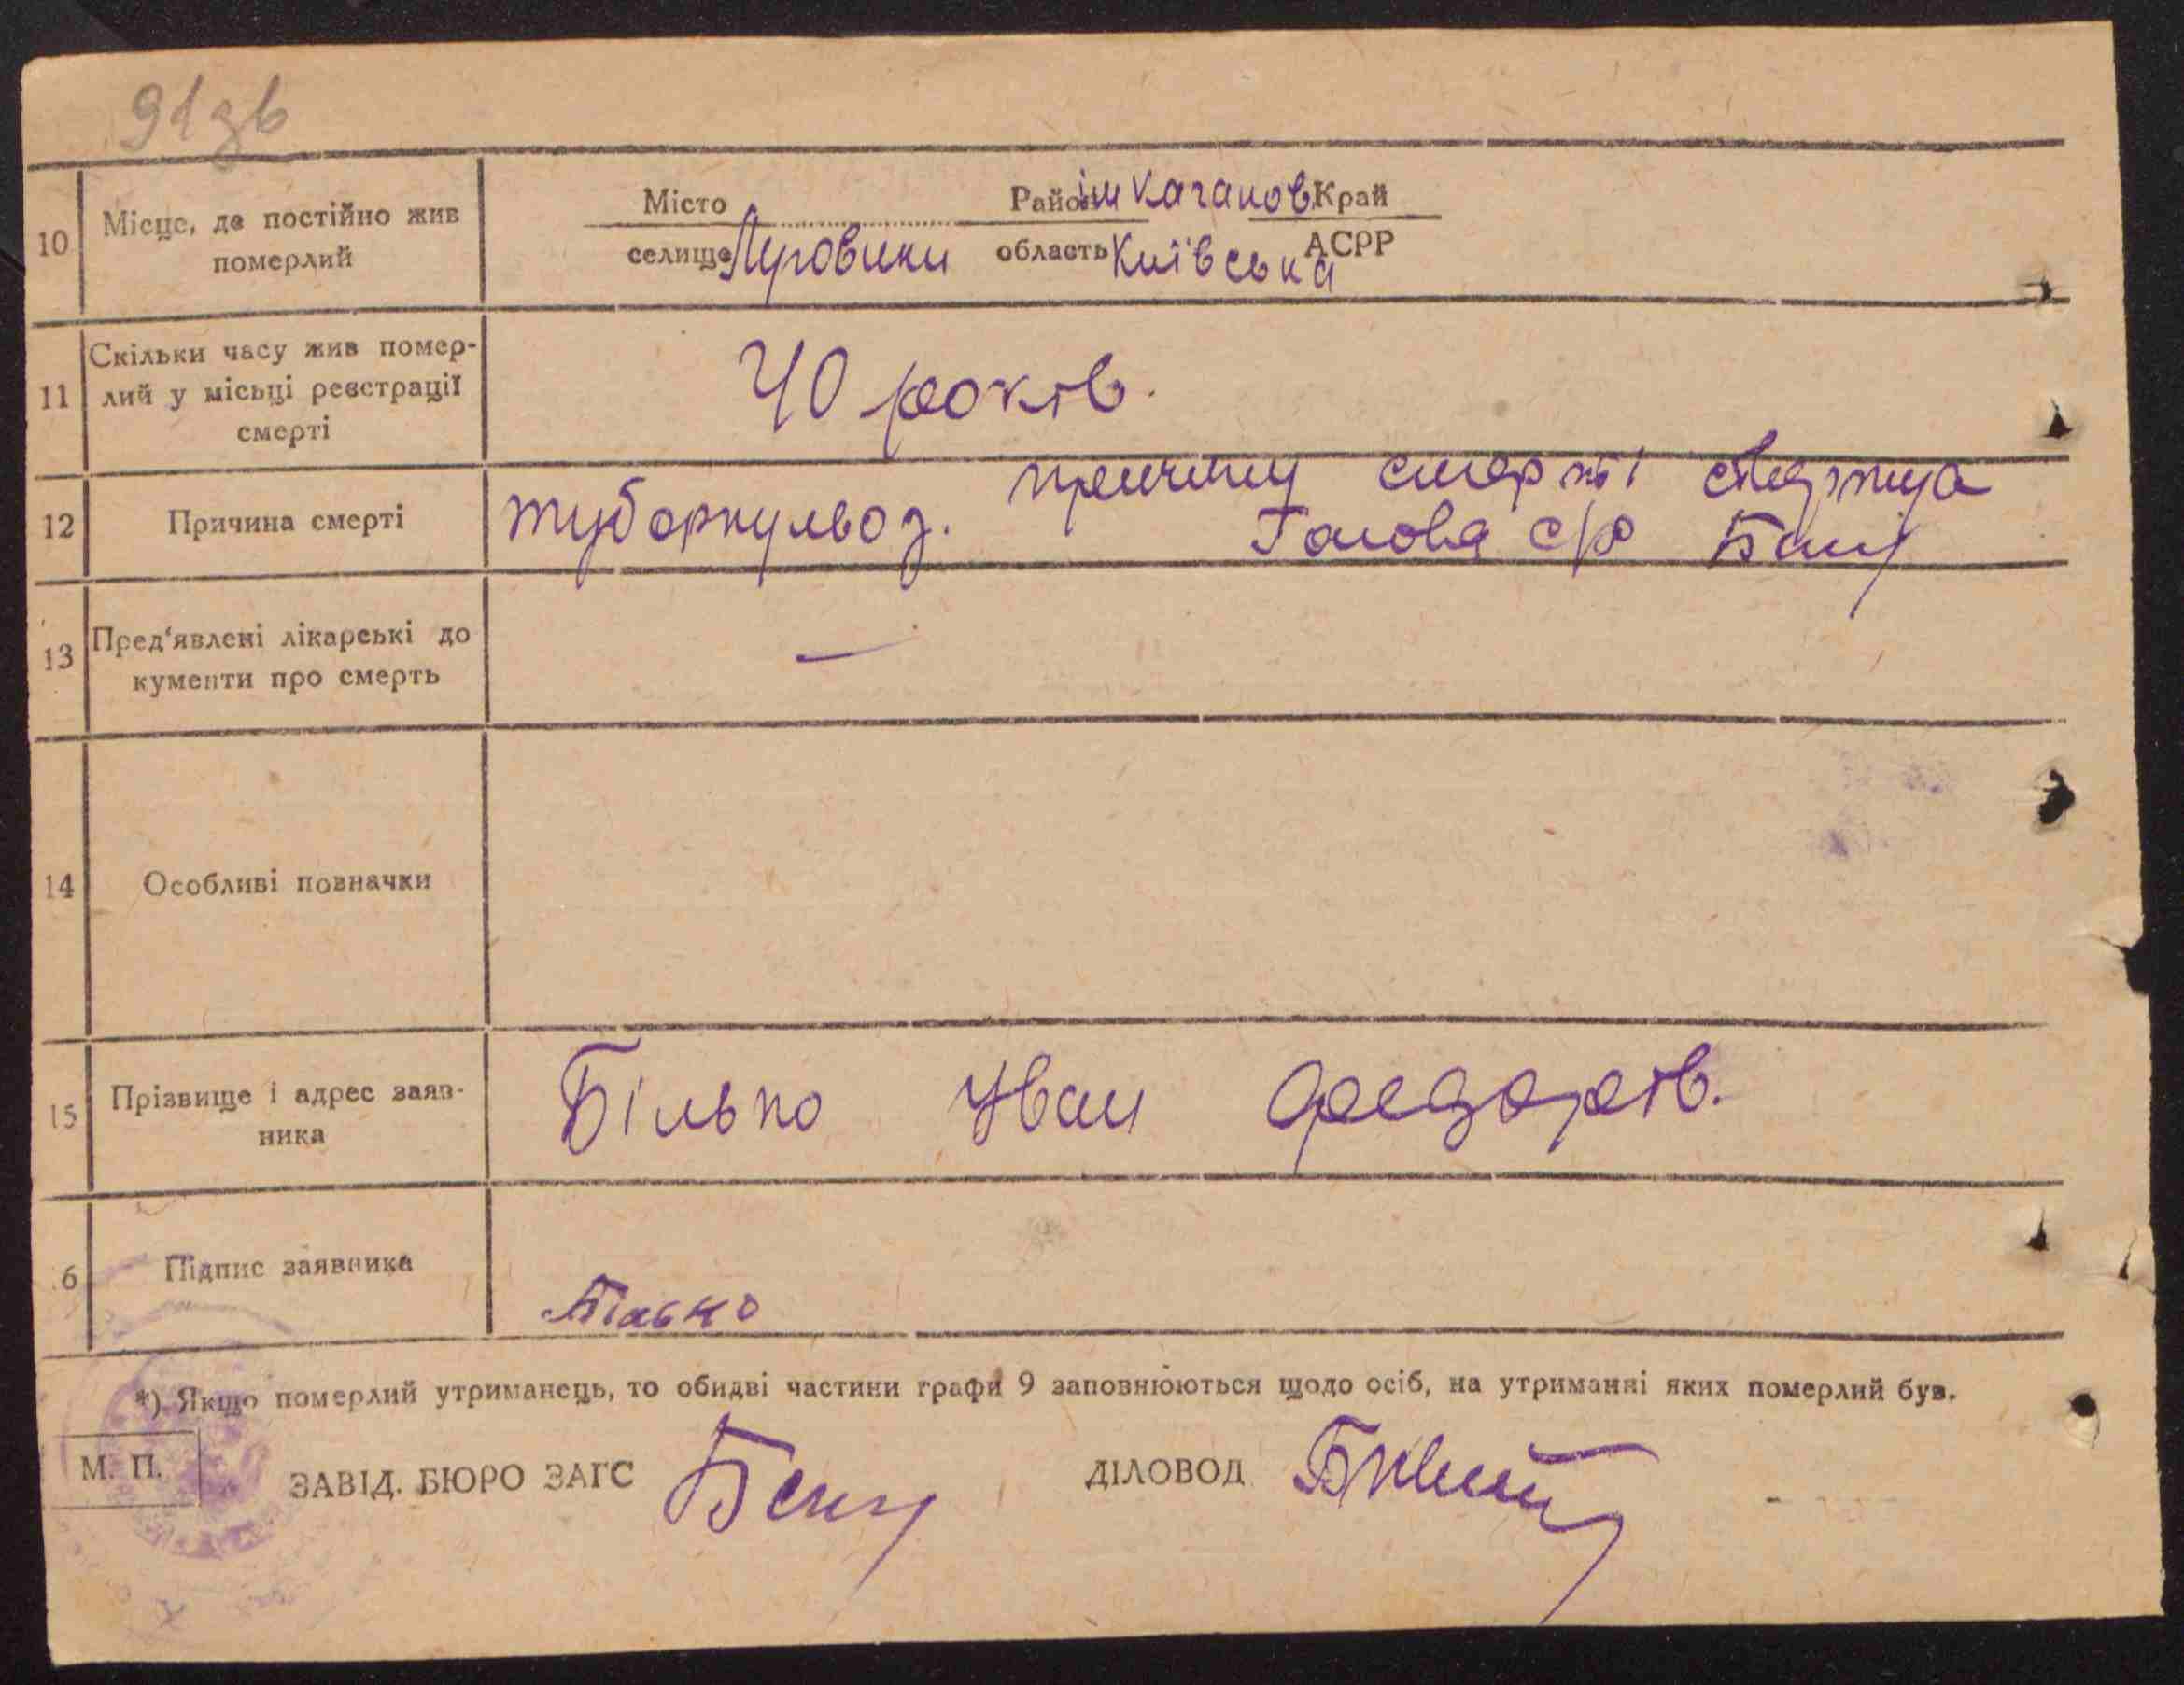 91 зв
10 Місце, де постійно жив померлий
Місто Район ім Каганов. Край
селище Луговики область Київська АСРР
11 Скільки часу жив помер-
лий у місьці реєстрації
смерті
40 років.
12 Причина смерті
туборкульоз. причину смерті
Голова с/р
13 Пред'явлені лікарські до
кументи про смерть
—
14 Особливі позначки
15 Прізвище і адрес заяв-
ника
Білько Іван Федорів.
6 Підпис заявника
Білько
*) Якщо померлий утриманець, то обидві частини графи 9 заповнюються щодо осіб, на утриманні яких померлий був.
М. П.
ЗАВІД. БЮРО ЗАГС ДІЛОВОД